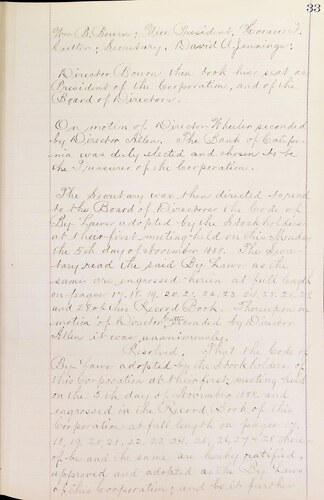 33
Wm B. Bourn; Vice President, Horace L.
Cutler; Secretary, David A. Jennings.
Director Bourn then took his seat as
President of the Corporation, and of the
Board of Directors.
On motion of Director Wheeler seconded
by Director Allen, The Bank of Califor-
nia was duly elected and chosen to be
the Treasurer of the Corporation.
The Secretary was then directed to read
to the Board of Directors the Code of
By-Laws adopted by the Stockholders
at their first meeting held on this Monday
the 5th day of November 188. The Secre-
tary read the said By Laws as the
same are engrossed herein at full length
on pages 17, 18, 19, 20, 21, 22, 23, 24, 25, 26, 27
and 28 of this Record Book. Thereupon on
motion of Director seconded by Director
Allen it was unanimously.
Resolved, That the Code of
By-Laws adopted by the Stockholders of
this Corporation at their first meeting held
on the 5th day of November 188 and
engrossed in the Record Book of this
Corporation at full length on pages 17,
18, 19, 20, 21, 22, 23, 24, 25, 26, 27 & 28 there-
of be and the same are hereby ratified,
approved and adopted as the By Laws
of this Corporation; and be it further